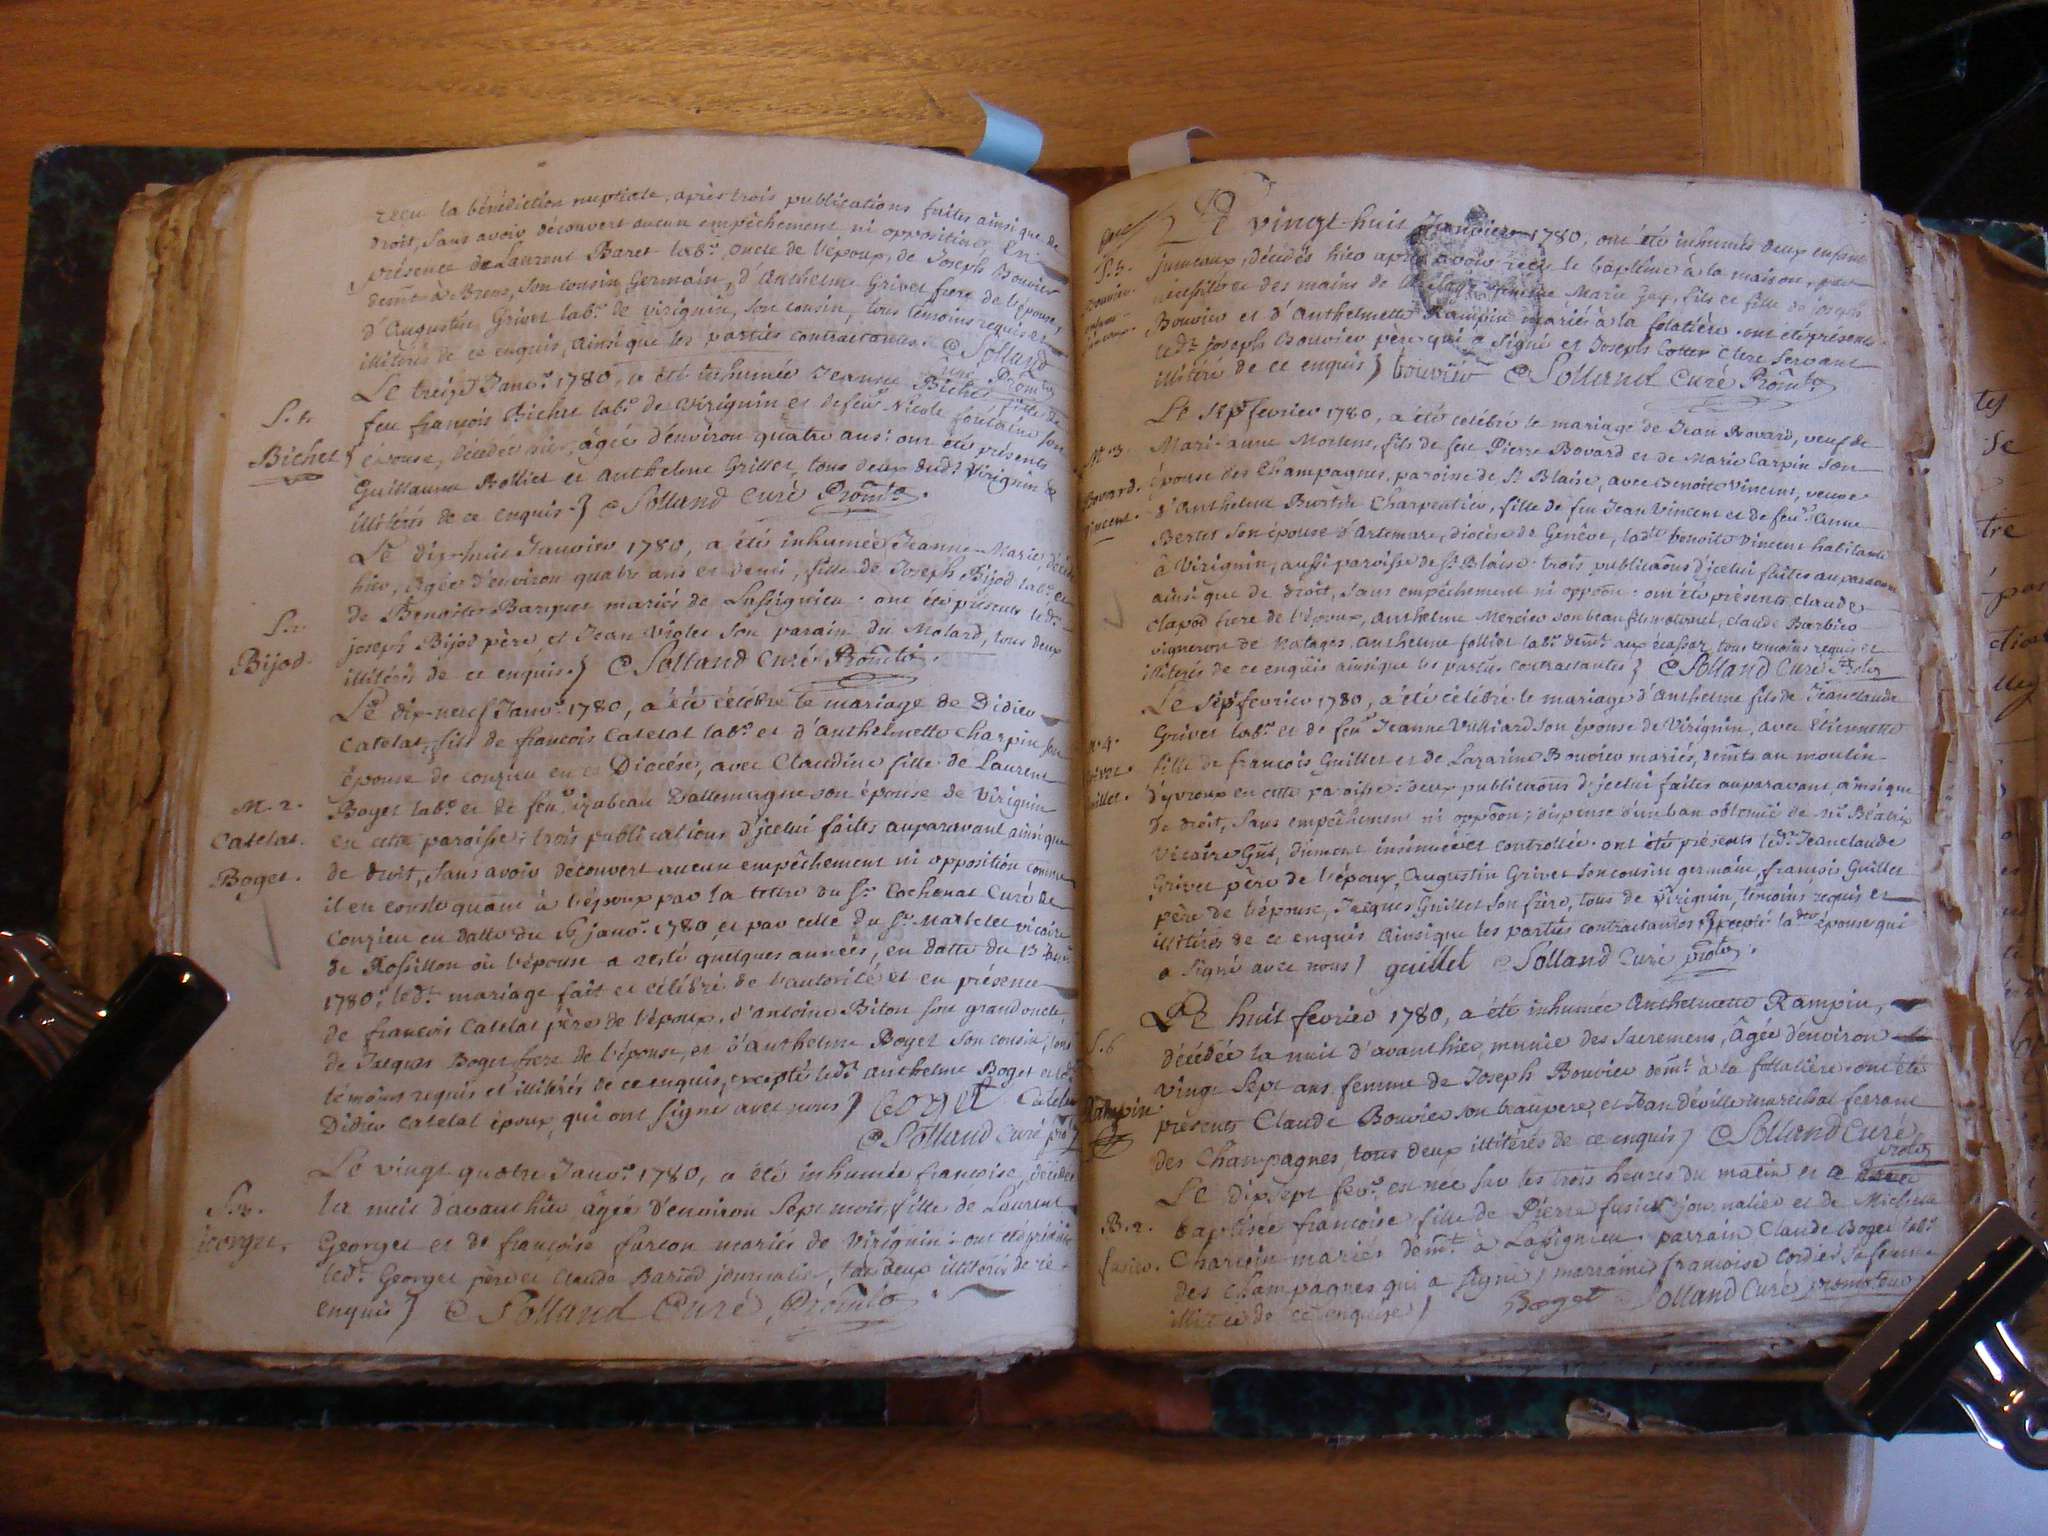 reçu la bénédiction nuptiale, après trois publications faites ainsi que de
droit, sans avoir découvert aucun empêchement ni opposition, En
présence de Laurent Baret lab.r oncle de l'époux, de Joseph Bouvier
dem.t à Brens, son cousin germain, d'Anthelme Grivet frere de l'épouse,
d'Augustin Grivet lab.r de virignin, son cousin, tous témoins requis et
illitérés de ce enquis, ainsi que les parties contractantes. Solland
curé Prom.to
Le treize Janv.r 1780, a été inhumée Jeanne Bichet fille de
S. 1.
feu françois Bichet lab.r de virignin et de feue Nicole fontaine son
Bichet
épouse, décédée hier, âgée d'environ quatre ans: ont été présents
Guillaume Rolliet et Anthelme Grillet, tous deux dud.t Virignin &
illitérés de ce enquis.} Solland Curé Prom.to.
Le dix-huit Janvier 1780, a été inhumée Jeanne-Marie, décédée
hier, âgée d'environ quatre ans et demi, fille de Joseph Bijod lab.r et
de Benoite Barquet mariés de Lassignieu. ont été présents led.t
S. 2.
joseph Bijod père, et Jean violet son parain du Molard, tous deux
Bijod.
illitérés de ce enquis.} Solland Curé Prom.to.
Le dix-neuf Janv.r 1780, a été célébré le mariage de Didier
Catelat, fils de françois Catelat lab.r et d'Anthelmette Charpin son
épouse de conzieu en ce Diocése, avec Claudine fille de Laurent
M. 2.
Boget lab.r et de feue izabeau Dallemagne son épouse de virignin
Catelat.
en cette paroisse; trois publications d'jcelui faites auparavant ainsi que
Boget.
de droit, sans avoir découvert aucun empêchement ni opposition comme
il en conste quant à l'époux par la lettre du S.r Cochonat Curé de
Conzieu en datte du 16 janv.r 1780 et par celle du S.r Martelet vicaire
de Rossillon où l'épouse a resté quelques années, en datte du 15 Janv.r
1780; led.t mariage fait et célébré de l'autorité et en présence
de françois Catelat père de l'époux, d'antoine Biton son grand oncle,
de Jacques Boget frere de l'épouse, et d'Anthelme Boget son cousin, tous
témoins requis et illitérés de ce enquis, excepté led.t Anthelme Boget et led.t
Didier Catelat époux, qui ont signé avec nous} boget Catelat
Solland Curé Pro.to
Le vingt quatre Janv.r 1780, a été inhumée françoise, décédée
S. 3.
la nuit d'avanthier âgée d'environ sept mois, fille de Laurent
Georget.
Georget et de françoise furcon mariés de Virignin: ont été présents
led.t Georget père et Claude Bariod journalier, tous deux illitérés de ce
enquis} Solland Curé, Prom.to
Le vingt-huit Janvier 1780, ont été inhumés deux enfans
jumeaux, décédés hier après avoir reçu le baptême à la maison, pour
Bouvier.
nécessité des mains de la Marie Jay, fils et fille de joseph
enfans
jumeaux.
Bouvier et d'Anthelmette Rampin mariés à la folatière. ont été présents
led.t joseph Bouvier père qui a signé et Joseph Cotter Clerc servant
illitéré de ce enquis} bouvier Solland Curé Prom.to
Le sept fevrier 1780, a été célébré le mariage de Jean Bovard, veuf de
M. 3.
Marie-anne Mortens, fils de feu Pierre Bovard et de Marie Carpin son
Bovard.
épouse des Champagnes, paroisse de S.t Blaise, avec Benoite Vincent, veuve
Vincent.
d'Anthelme Burtin Charpentier, fille de feu Jean Vincent et de feue Anne
Bertet son épouse d'Artemare, diocèse de Genève, lad.te benoite vincent habitante
à Virignin, aussi paroisse de S.t Blaise. trois publicaõns d'jcelui faites auparavant
ainsi que de droit, sans empêchement ni oppoõn. ont été présents claude
clapod frere de l'époux, anthelme Mercier son beau fils, claude Barbier
vigneron de Natages, anthelme folliet lab.r dem.t aux écassaz, tous témoins requis et
illitérés de ce enquis ainsique les parties contractantes} Solland Curé Pro.to
Le sept fevrier 1780, a été célébré le mariage d'Anthelme fils de Jeanclaude
M. 4.
Grivet lab.r et de feue Jeanne Vulliard son épouse de Virignin, avec Étiennette
Grivet.
fille de françois Guillet et de Lazarine Bouvier mariés, dem.ts au moulin
Guillet.
d'yvroux en cette paroisse; deux publicaõns d'jcelui faites auparavant, ainsique
de droit, sans empêchement ni oppoõn; dispense d'un ban obtenue de M.r Béatrix
Vicaire Gñl, dûment insinuée et controllée. ont été présents led.t Jeanclaude
Grivet père de l'époux, Augustin Grivet son cousin germain, françois Guillet
père de l'épouse, Jacques Guillet son frère, tous de virignin, témoins requis et
illitérés de ce enquis ainsique les parties contractantes, excepté lad.te épouse qui
a signé avec nous} guillet Solland Curé pro.to.
Le huit fevrier 1780, a été inhumée Anthelmette Rampin,
S. 6
décédée la nuit d'avanthier, munie des sacremens, âgée d'environ
vingt sept ans, femme de Joseph Bouvier dem.t à la follatière. ont été
Rampin
présents Claude Bouvier son beaupere, et Jean déville maréchal ferrant
des Champagnes, tous deux illitérés de ce enquis} Solland Curé
pro.to
Le dixsept fév.r est née sur les trois heures du matin et a été
B. 2.
baptisée françoise fille de Pierre fusier journalier et de Michele
fusier.
Charvin mariés dem.t à Lassignieu. parrain Claude Boget lab.r
des Champagnes qui a signé, marraine françoise cordier sa femme
illitérée de ce enquise} Boget Solland Curé promoteur